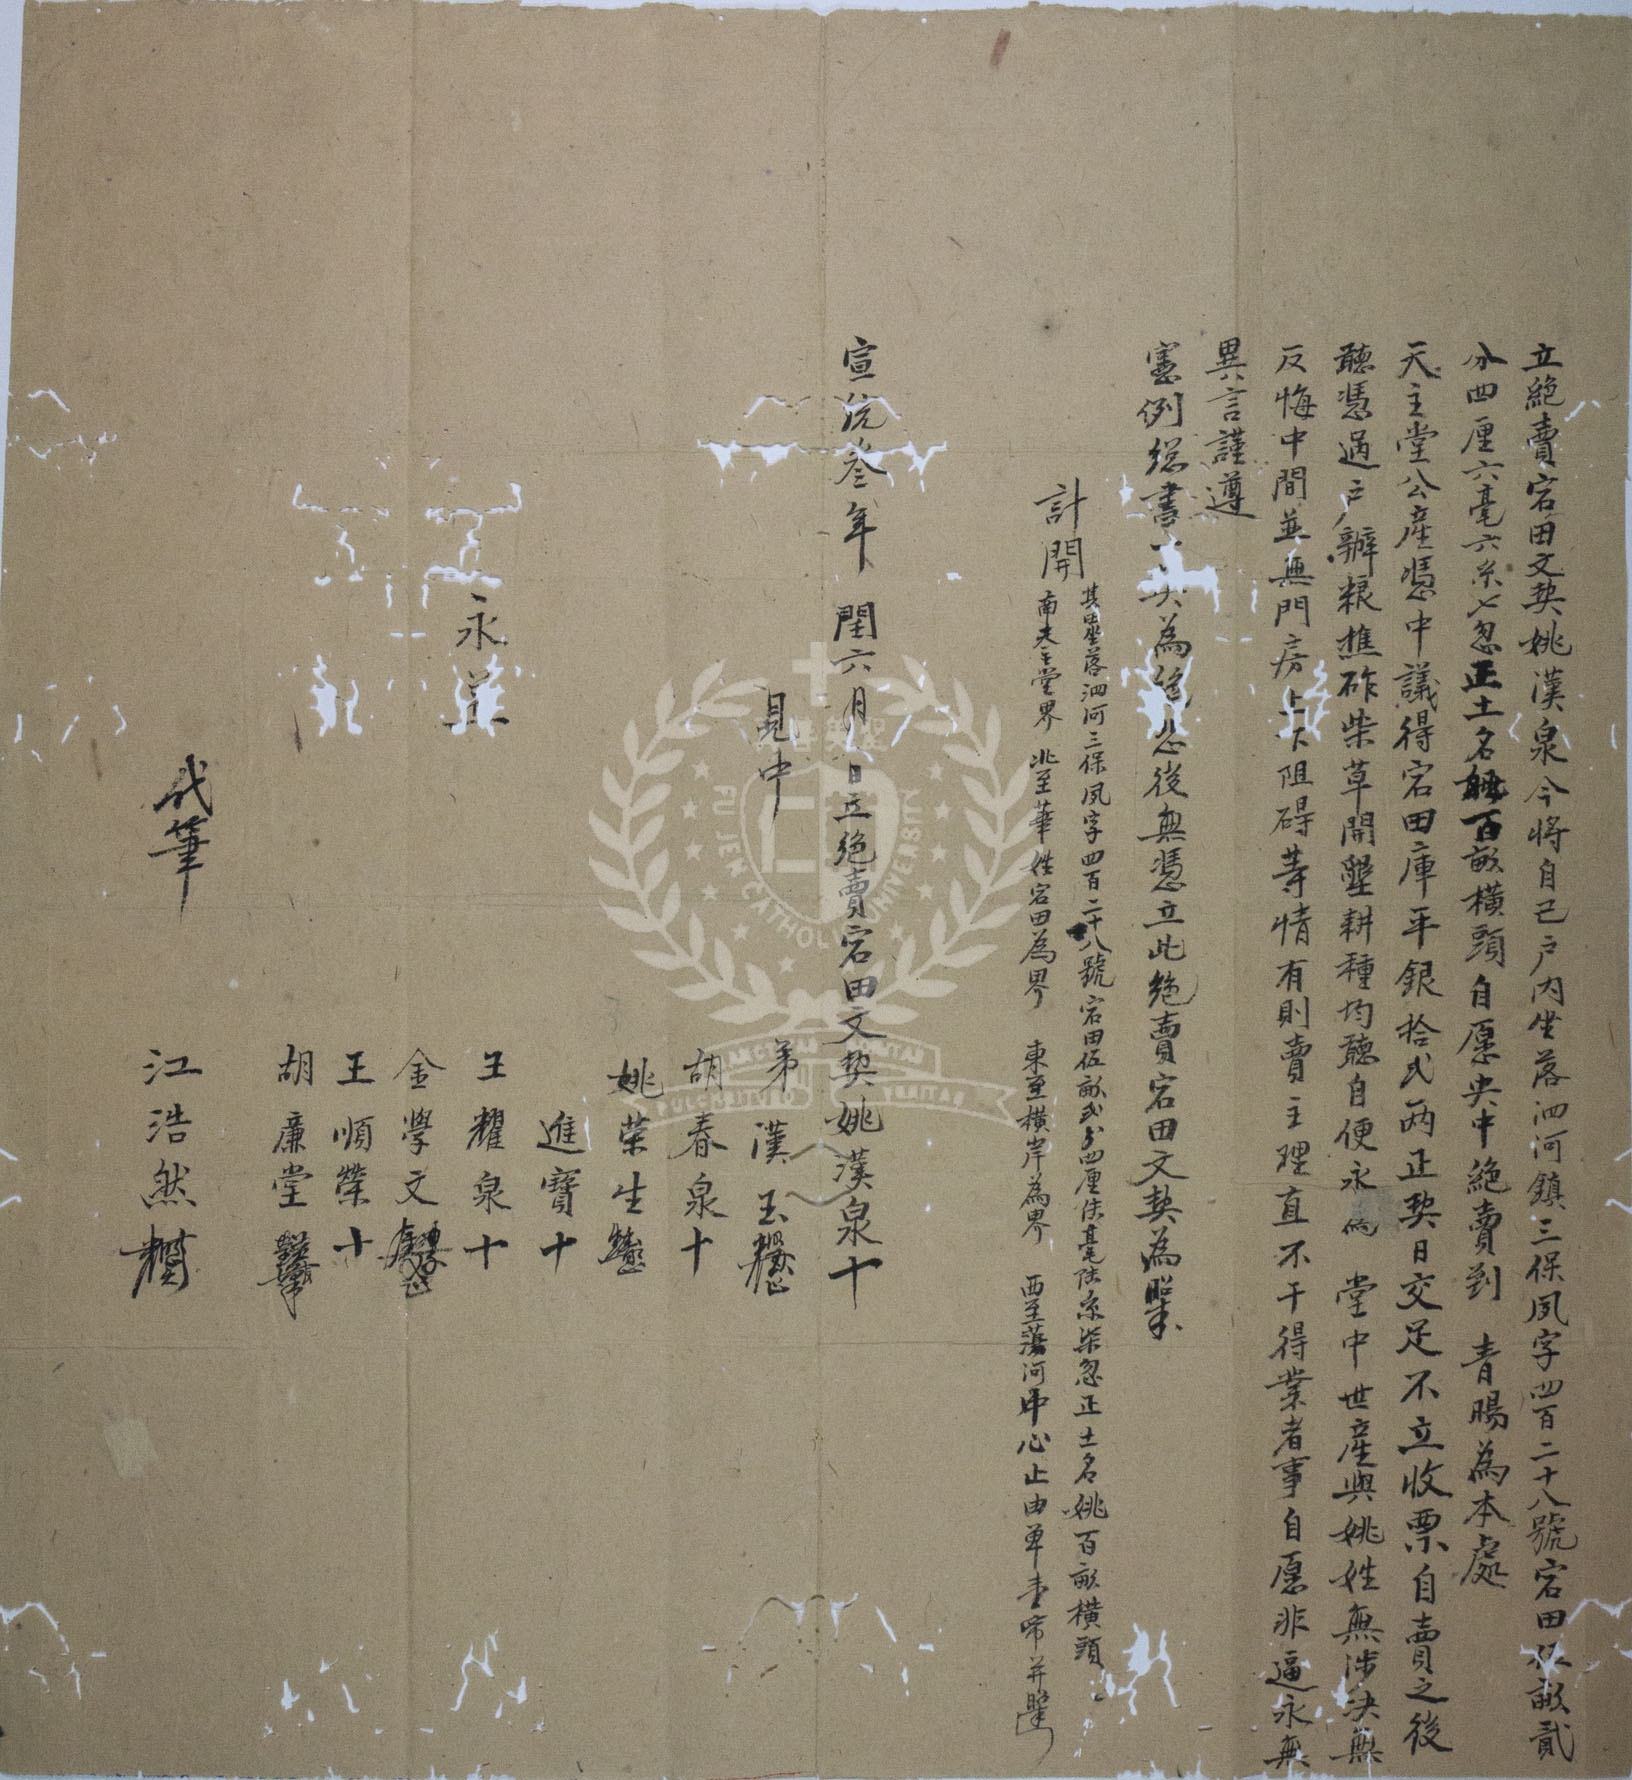 立絕賣宕田文契姚漢泉今將自己戶內坐落泗河鎮三保夙字四百二十八號宕田伍畝貳
分四厘六毫六糸七忽正土名姚百畝橫頭自愿央中絕賣到 青陽為本處
天主堂公產憑中議得宕田庫平銀拾弍両正契日交足不立收票自賣之後
聽憑過戶辦粮樵砟柴草開墾耕種均聽自便永為 堂中世產與姚姓無涉決無
反悔中間並無門房上下阻碍等情有則賣主理直不干得業者事自愿非逼永無
異言謹遵
憲例總書一契為絕恐後無憑立此絕賣宕田文契為照
計開 其田坐落泗河三保夙字四百二十八號宕田伍畝弍分四厘陸毫陸糸柒忽正土名姚百畝橫頭
南天主堂界 北至華姓宕田為界 東至橫岸為界 西至蕩河中心止由單壹帋并照
宣統叁年 閏六月 日立絕賣宕田文契姚漢泉十
見中 弟 漢玉
胡春泉十
姚榮生
進寶十
永 王耀泉十
金學文
王順榮十
胡廉堂
代筆 江浩然
FU JEN CATHOLIC UNIVERSITY